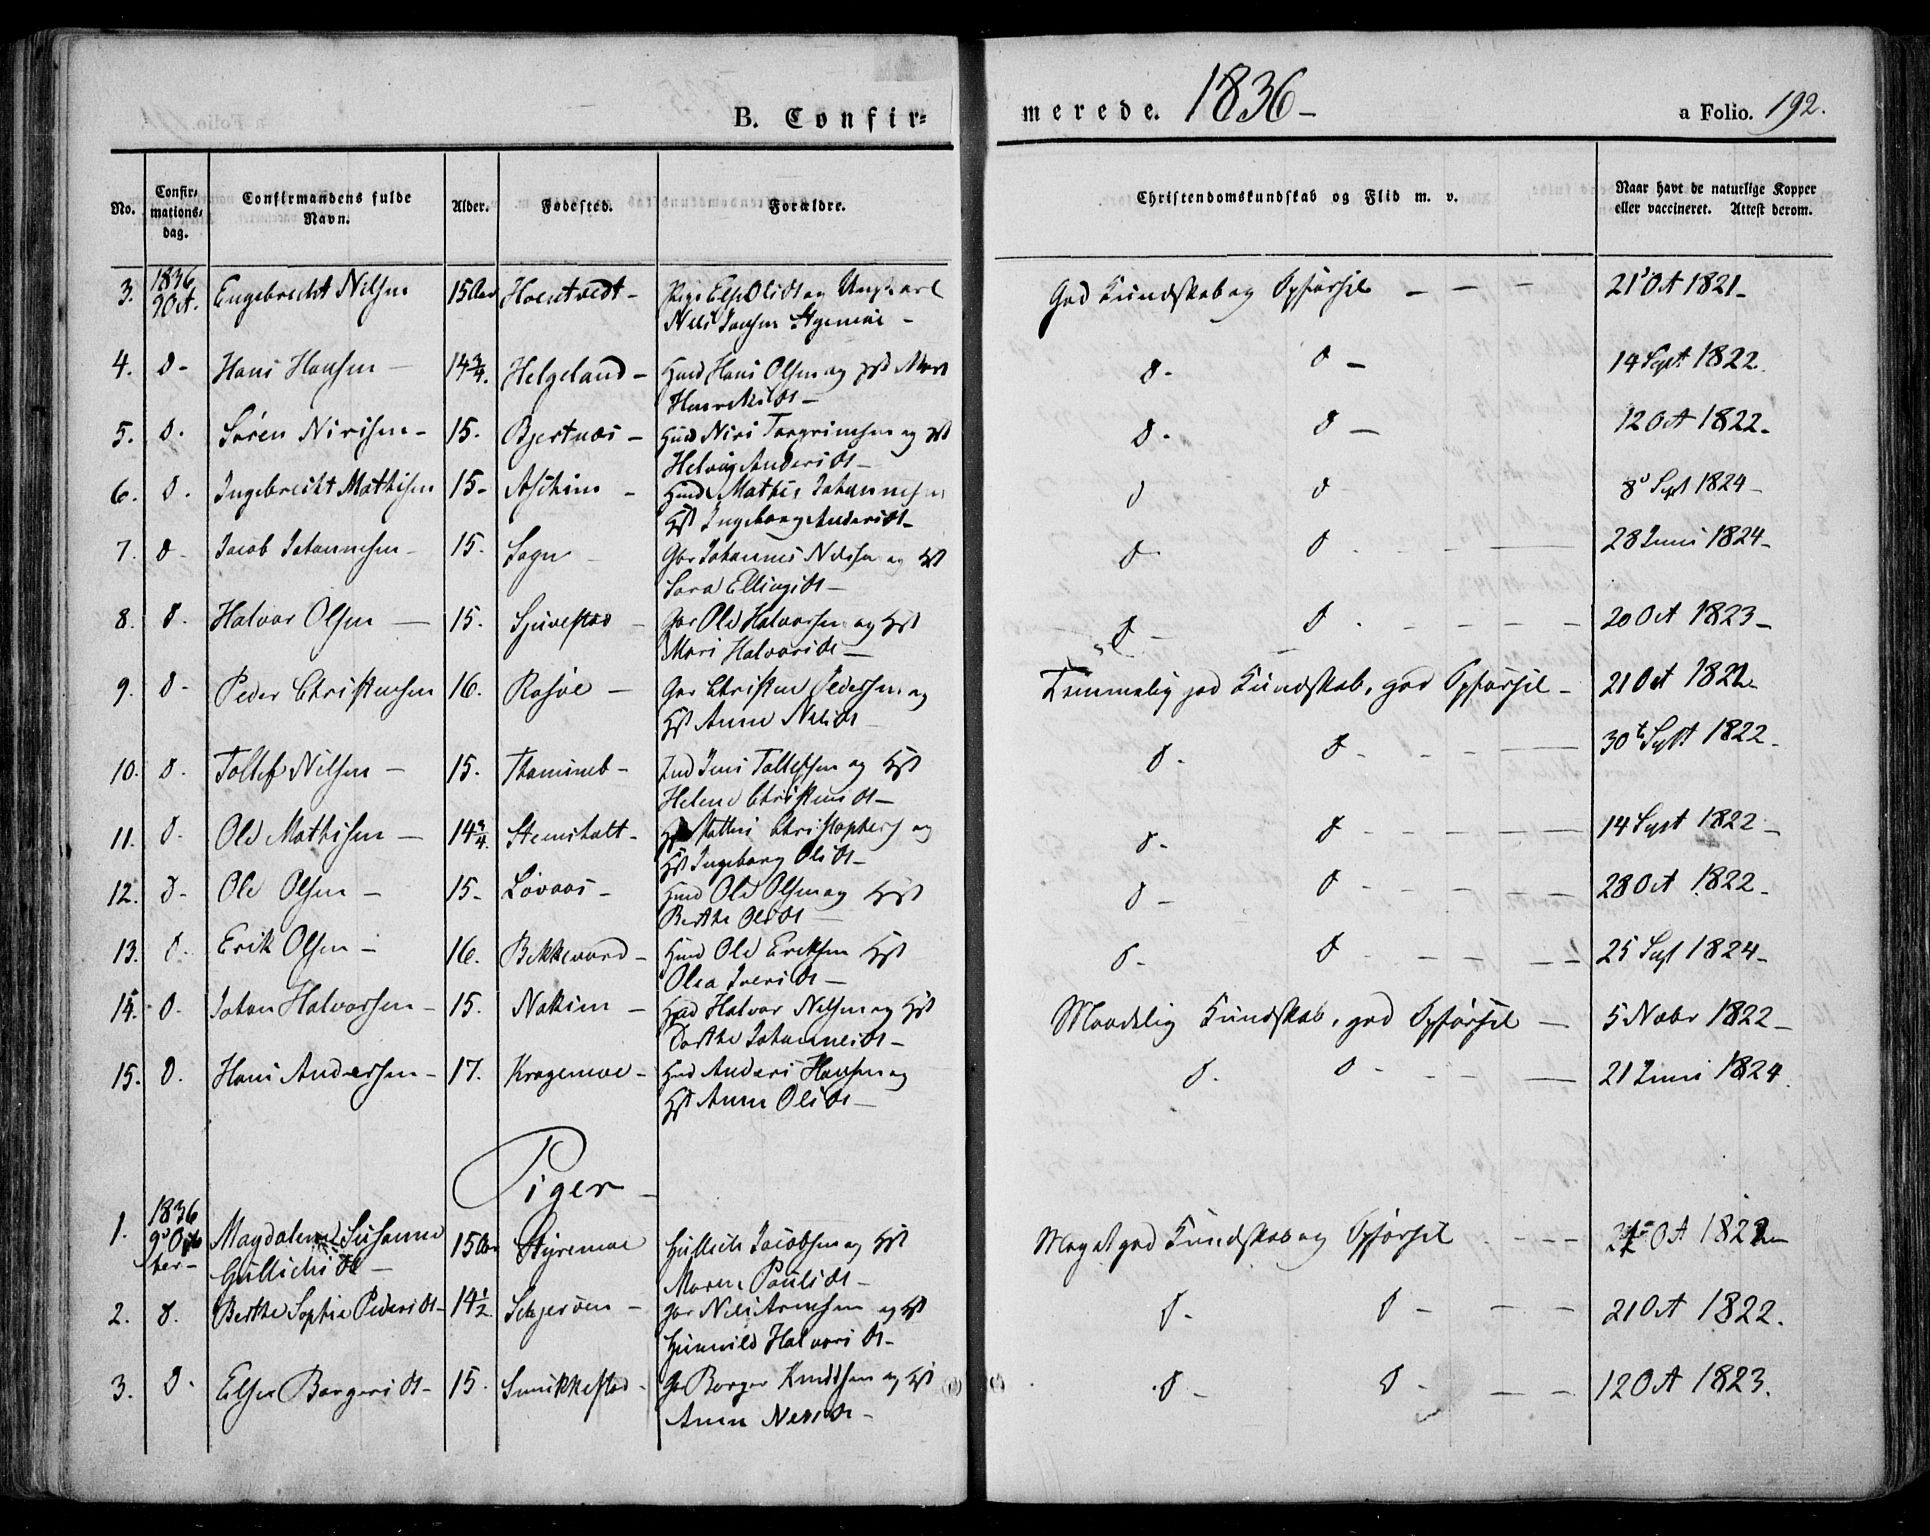 B. Confirmerede. 1836 – a Folio. 192.
No. Confirmations-dag. Confirmandens fulde Navn. Alder. Fødested. Forældre. Christendomskundskab og Flid m. v. Naar havt de naturlige Kopper eller vaccineret. Attest derom.
3. 1836 9 Oct. Engebrecht Nilsen 15 Aar Pige Else Olsdt og Ungkarl God Kundskab og Opførsel – – – 21 Oct 1821 –
Nils Jansen
4. D – Hans Hansen – 14 3/4. Helgeland – Hmd Hans Olsen og Hst
Henriksdt –
D – D – 14 Sept 1822.
5. D. Søren Nirisen – 15. Bjertnæs – Hmd Niri Torgrimsen og Hst
Helvig Andersdt –
D – D – 12 Oct 1822 –
6. D. Ingebrecht Mathisen 15 – Aschim – Hmd Mathis Johannesen
Hst Ingeborg Andersdt –
D D – 8 Sept 1824 –
7. D – Jacob Johannesen – 15. Sogn – Gbr Johannes Nilsen og Hst
Sara Ellingsdt –
D – D – 28 Juni 1824 –
8. D. Halvor Olsen – 15. – Gbr Ole Halvorsen og Hst
Mari Halvorsdt –
D – D – 20 Oct 1823 –
9. D – Peder Christensen 16. – Gbr Christen Pedersen og
Hst Anne Nilsdt –
Temmelig god Kundskab, god Opførsel – 21 Oct 1822
10. D. Tollef Nilsen – 15. – Jens Tollefsen og Hst
Helene Christensdt –
D – D – 30 Sept 1822 –
11. D. Ole Mathisen – 14 3/4 Stenshalt – Christophers og
Hst Ingeborg Olsdt –
D – D – 14 Sept 1822 –
12. D – Ole Olsen – 15 – Løvaas – Hmd Ole Olsen og Hst
Berthe Olsdt –
D – D – 28 Oct 1822 –
13. D. Erik Olsen – 16. Bekkevard – Hmd Ole Eriksen Hst
Olea Iversdt –
D – D – 25 Sept 1824 –
14. D. Johan Halvorsen – 15. Nakim – Hmd Halvor Nilsen og Hst
Dorthe Johannesdt –
Maadelig Kundskab, god Opførsel – 5 Novbr 1822 –
15. D. Hans Andersen – 17. Kragemoe – Hmd Anders Hansen og
Hst Anne Olsdt –
D. D – 21 Juni 1824.
Piger –
1. 1836 9 October – Magdalene Susanne 15 Aar Styremoe Gullich Jacobsen og Hst
Gullichsdt – Maren Paulsdt –
Meget god Kundskab og Opførsel – – – Oct 1822
2. D. Berthe Sophie Pedersdt – 14 1/2 – Gbr Nils Arnesen og Hst
Gunvild Halvorsdt –
D – D – 21 Oct 1822.
3. D. Else Borgersdt – 15. Smikkestad – Gbr Borger Knudsen og Hst
Anne
D – D – 12 Oct 1823.